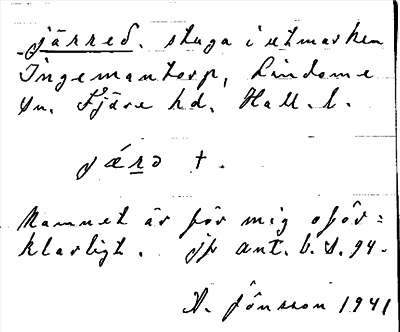 järred. stuga i utmarken
Ingemantorp, Lindome
sn. Fjäre hd. Hall. l.
jǽrd †.
Namnet är för mig oför=
klarligt. jfr ant. b. s. 94.
A. Jönsson 1941